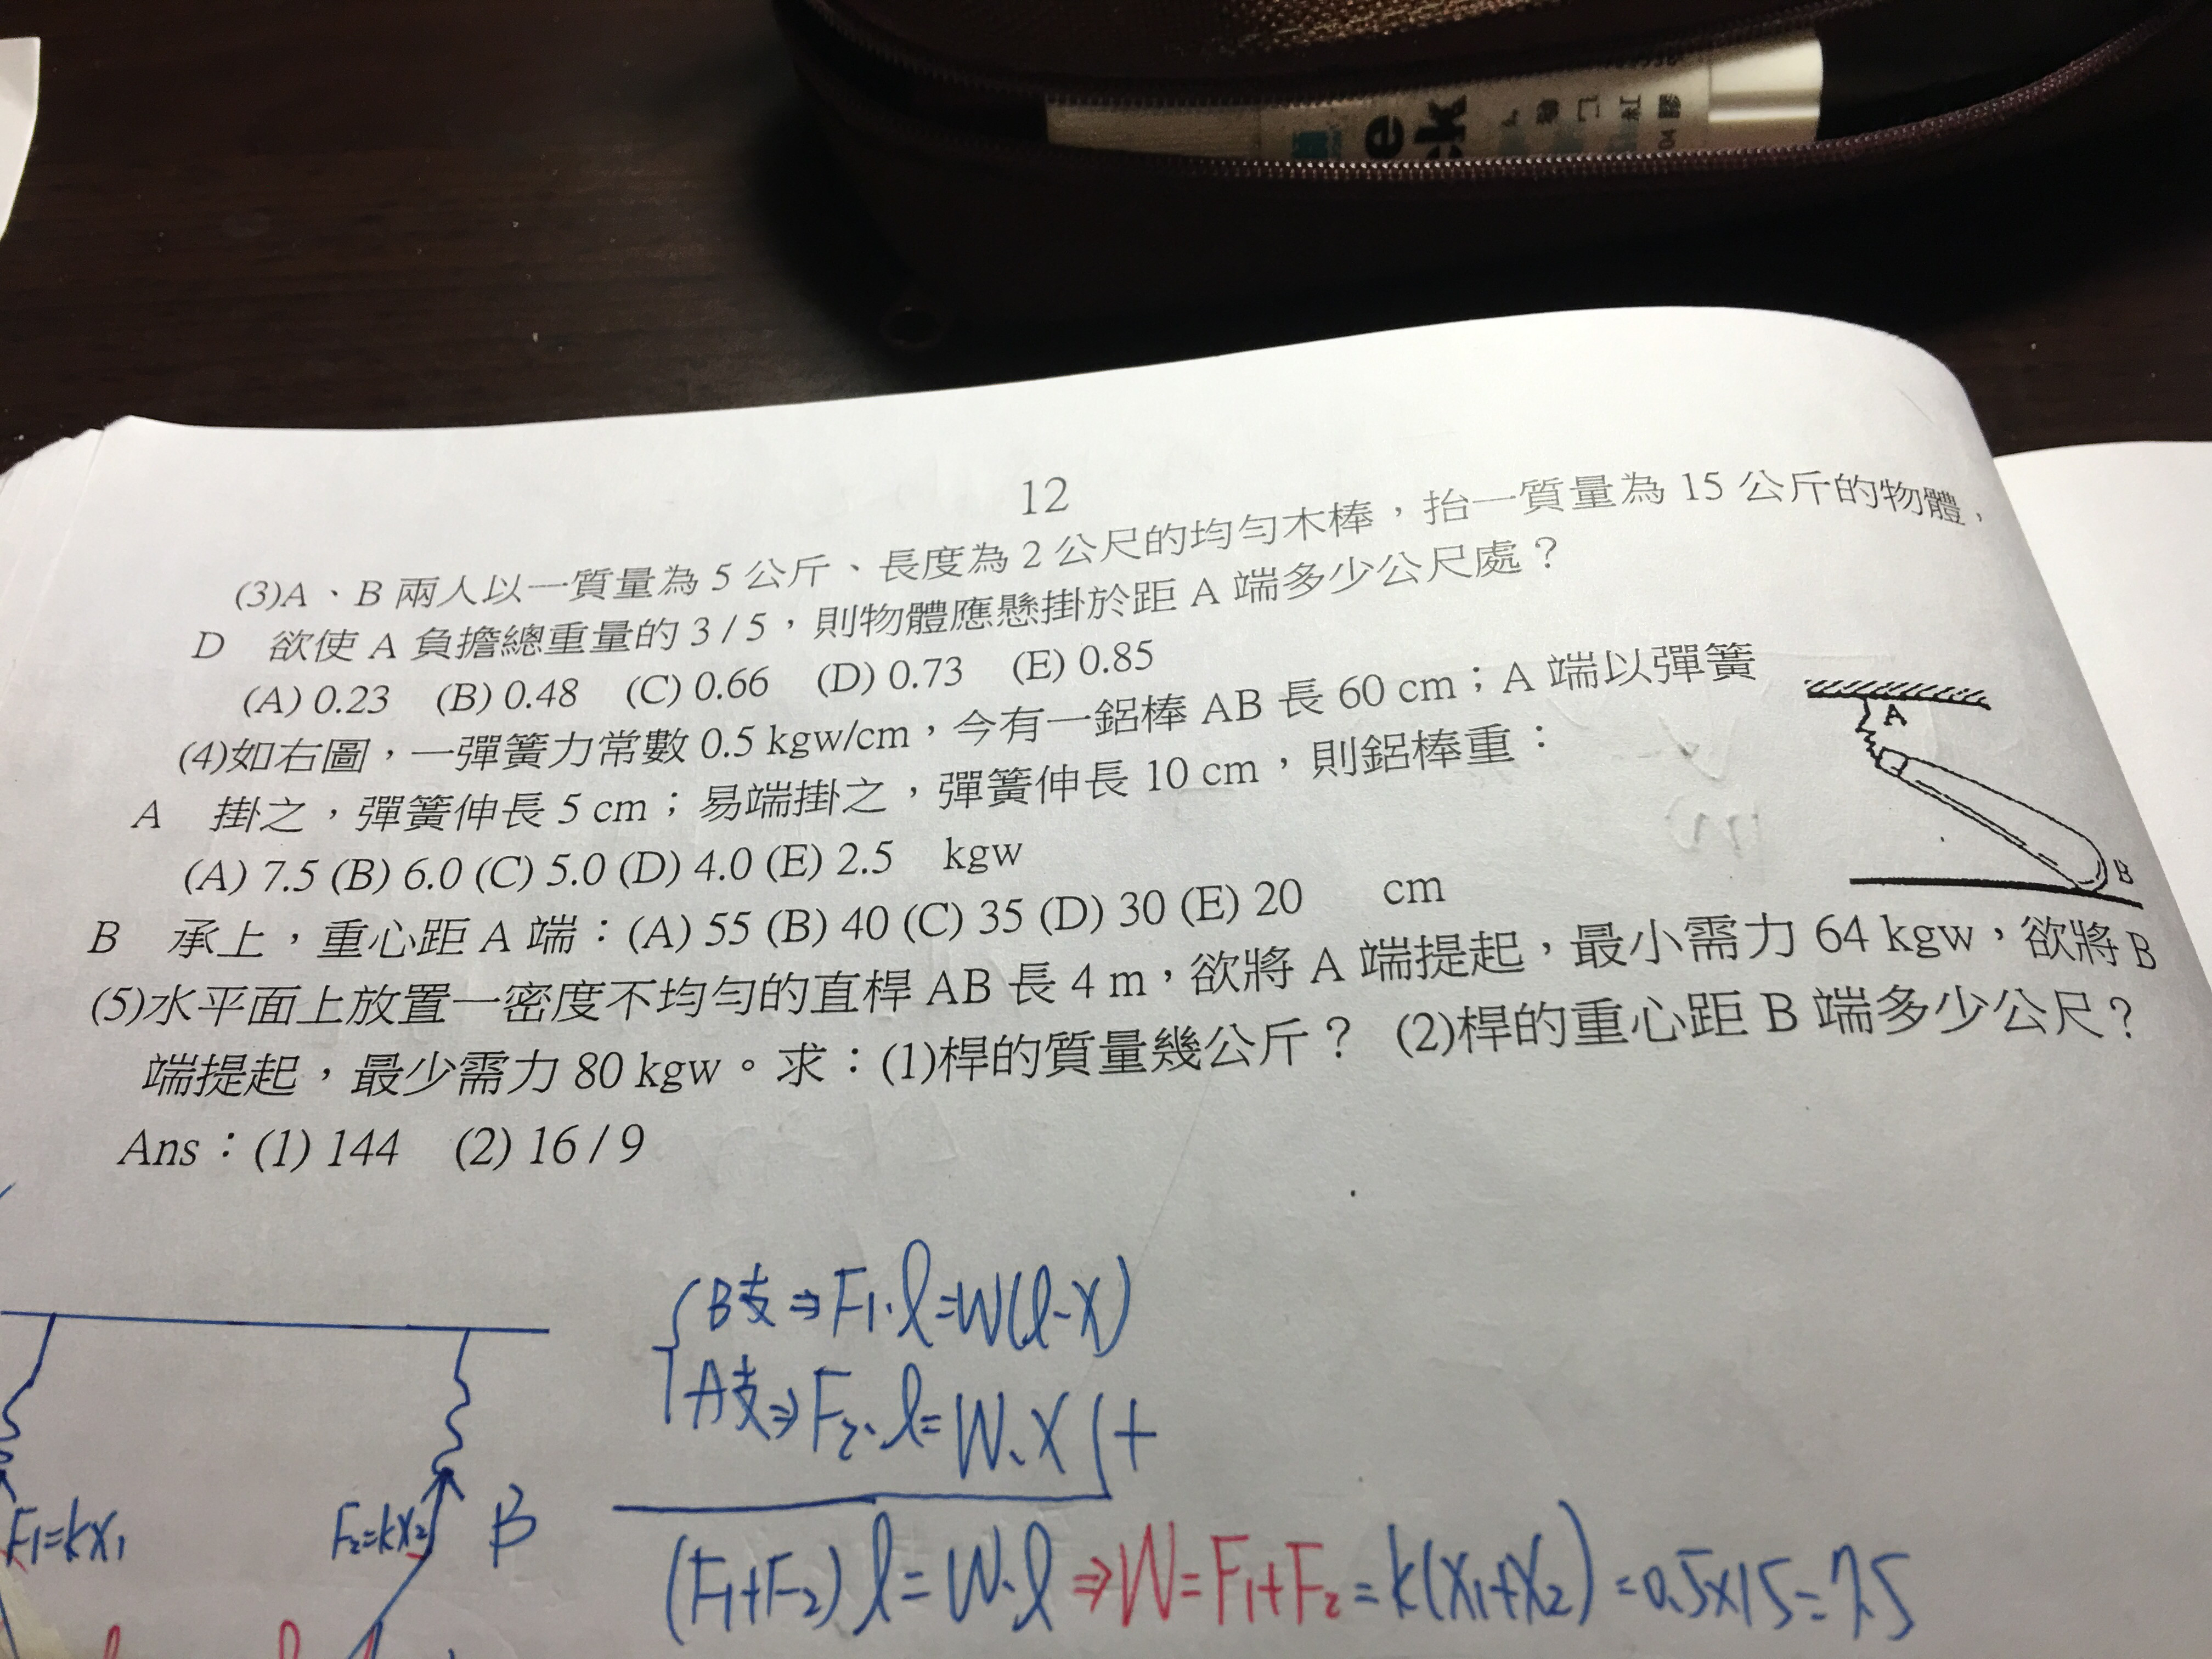 ek
紅
膠
12
(3)A、B 兩人以一質量為 5 公斤、長度為 2 公尺的均勻木棒，抬一質量為 15 公斤的物體，
D 欲使 A 負擔總重量的 3 / 5，則物體應懸掛於距 A 端多少公尺處？
(A) 0.23 (B) 0.48 (C) 0.66 (D) 0.73 (E) 0.85
(4)如右圖，一彈簧力常數 0.5 kgw/cm，今有一鋁棒 AB 長 60 cm；A 端以彈簧
A 掛之，彈簧伸長 5 cm；易端掛之，彈簧伸長 10 cm，則鋁棒重：
(A) 7.5 (B) 6.0 (C) 5.0 (D) 4.0 (E) 2.5 kgw
A
B
B 承上，重心距 A 端：(A) 55 (B) 40 (C) 35 (D) 30 (E) 20 cm
(5)水平面上放置一密度不均勻的直桿 AB 長 4 m，欲將 A 端提起，最小需力 64 kgw，欲將 B
端提起，最少需力 80 kgw。求：(1)桿的質量幾公斤？ (2)桿的重心距 B 端多少公尺？
Ans：(1) 144 (2) 16 / 9
B支⇒F₁·l=W(l-X)
A支⇒F₂·l=W·X +
F₁=kX₁
F₂=kX₂
B
(F₁+F₂)l=W·l ⇒W=F₁+F₂=k(X₁+X₂)=0.5×15=7.5